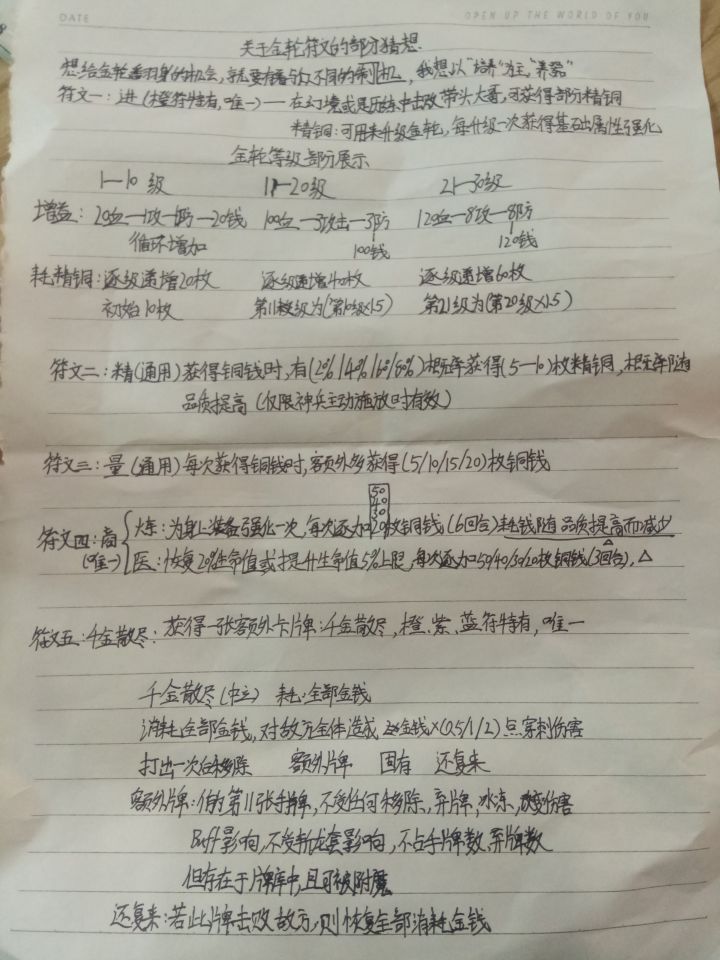 DATE
OPEN UP THE WORLD OF YOU
关于金轮符文的部分猜想.
想给金轮翻身的机会,就要有着与众不同的契机,我想以"培养"为主,"养器"
符文一:进(橙符特有,唯一)——在幻境或是历练中击败带头大哥,可获得部分精铜
精铜:可用来升级金轮,每升级一次获得基础属性强化
金轮等级部分展示
1—10级 11—20级 21—30级
增益:20血—1攻—1防—20钱 100血—3攻击—3防 120血—8攻—8防
循环增加 100钱 120钱
耗精铜:逐级递增20枚 逐级递增40枚 逐级递增60枚
初始10枚 第11级为(第10级×1.5) 第21级为(第20级×1.5)
符文二:精(通用)获得铜钱时,有(2%/4%/6%/8%)概率获得(5—10)枚精铜,概率随
品质提高(仅限神兵主动施放时有效)
符文三:量(通用)每次获得铜钱时,额外多获得(5/10/15/20)枚铜钱
50
40
30
符文四:商 火东:为身上装备强化一次,每次逐加20枚铜钱(6回合)耗钱随品质提高而减少
(唯一) 医:恢复20%生命值或提升生命值5%上限,每次逐加50/40/30/20枚铜钱(3回合),△
符文五:千金散尽:获得一张额外卡牌:千金散尽,橙、紫、蓝符特有,唯一
千金散尽(中立) 耗:全部金钱
消耗全部金钱,对敌方全体造成 金钱×(0.5/1/2)点穿刺伤害
打出一次后移除 额外牌 固有 还复来
额外牌:你的第11张手牌,不受任何移除,弃牌,冰冻,改变伤害
Buff影响,不受新龙套影响,不占手牌数,弃牌数
但存在于牌库中,且可被附魔
还复来:若此牌击败敌方,则恢复全部消耗金钱